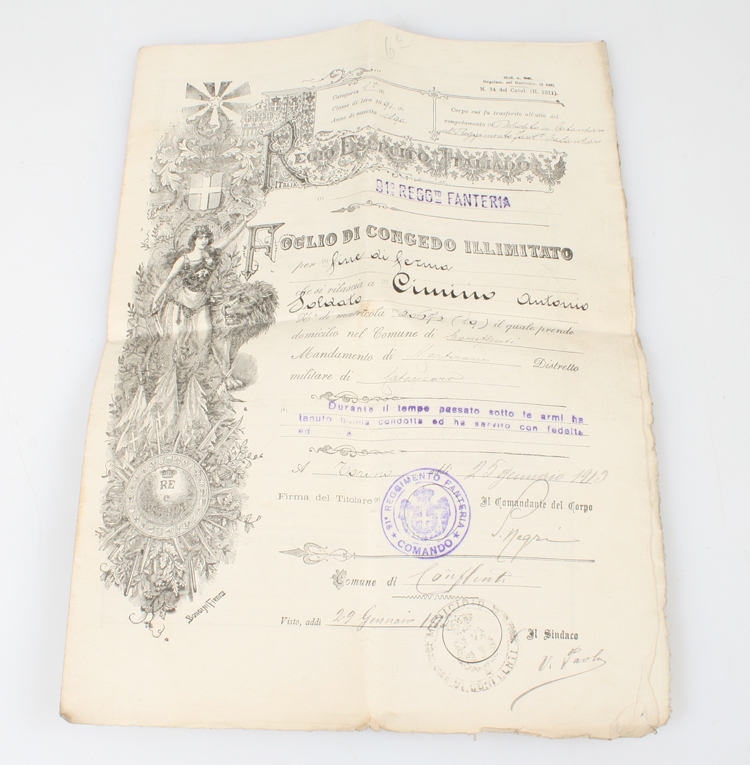 6ª
N. 34 del Catal. (R. 1911).
Categoria
Classe di leva
Anno di nascita
Corpo cui fu trasferito all'atto del
REGIO ESERCITO ITALIANO
ITALIA
91° REGGTO FANTERIA
FOGLIO DI CONGEDO ILLIMITATO
per fine di ferma
che si rilascia a Cimino Antonio
Soldato
N. di matricola (19) il quale prende
domicilio nel Comune di Conflenti
Mandamento di Martirano Distretto
militare di Catanzaro
Durante il tempo passato sotto le armi ha
tenuto buona condotta ed ha servito con fedeltà
ed
A Torino addì 25 gennaio 1913
Firma del Titolare
Il Comandante del Corpo
91° REGGIMENTO FANTERIA
COMANDO
S. Negri
RE
e
Comune di Conflenti
Visto, addì 29 Gennaio
MUNICIPIO
DI CONFLENTI
Il Sindaco